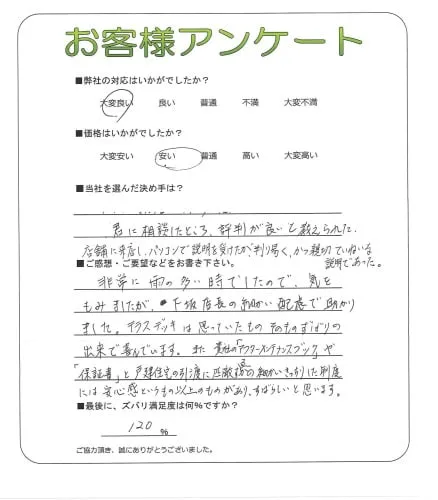 お客様アンケート
■弊社の対応はいかがでしたか？
大変良い 良い 普通 不満 大変不満
■価格はいかがでしたか？
大変安い 安い 普通 高い 大変高い
■当社を選んだ決め手は？
君に相談したところ、評判が良いと教えられた。
店舗に来店し、パソコンで説明を受けたが、判り易く、かつ親切ていねいな
説明であった。
■ご感想・ご要望などをお書き下さい。
非常に雨の多い時でしたので、気を
もみましたが、下坂店長の細かい配慮で助かり
ました。テラスデッキは思っていたものそのものずばりの
出来で喜んでいます。また貴社の「アフターメンテナンスブック」や
「保証書」と戸建住宅の引渡に匹敵する細かいきっちりした制度
には安心感というもの以上のものがあり、すばらしいと思います。
■最後に、ズバリ満足度は何％ですか？
120 %
ご協力頂き、誠にありがとうございました。